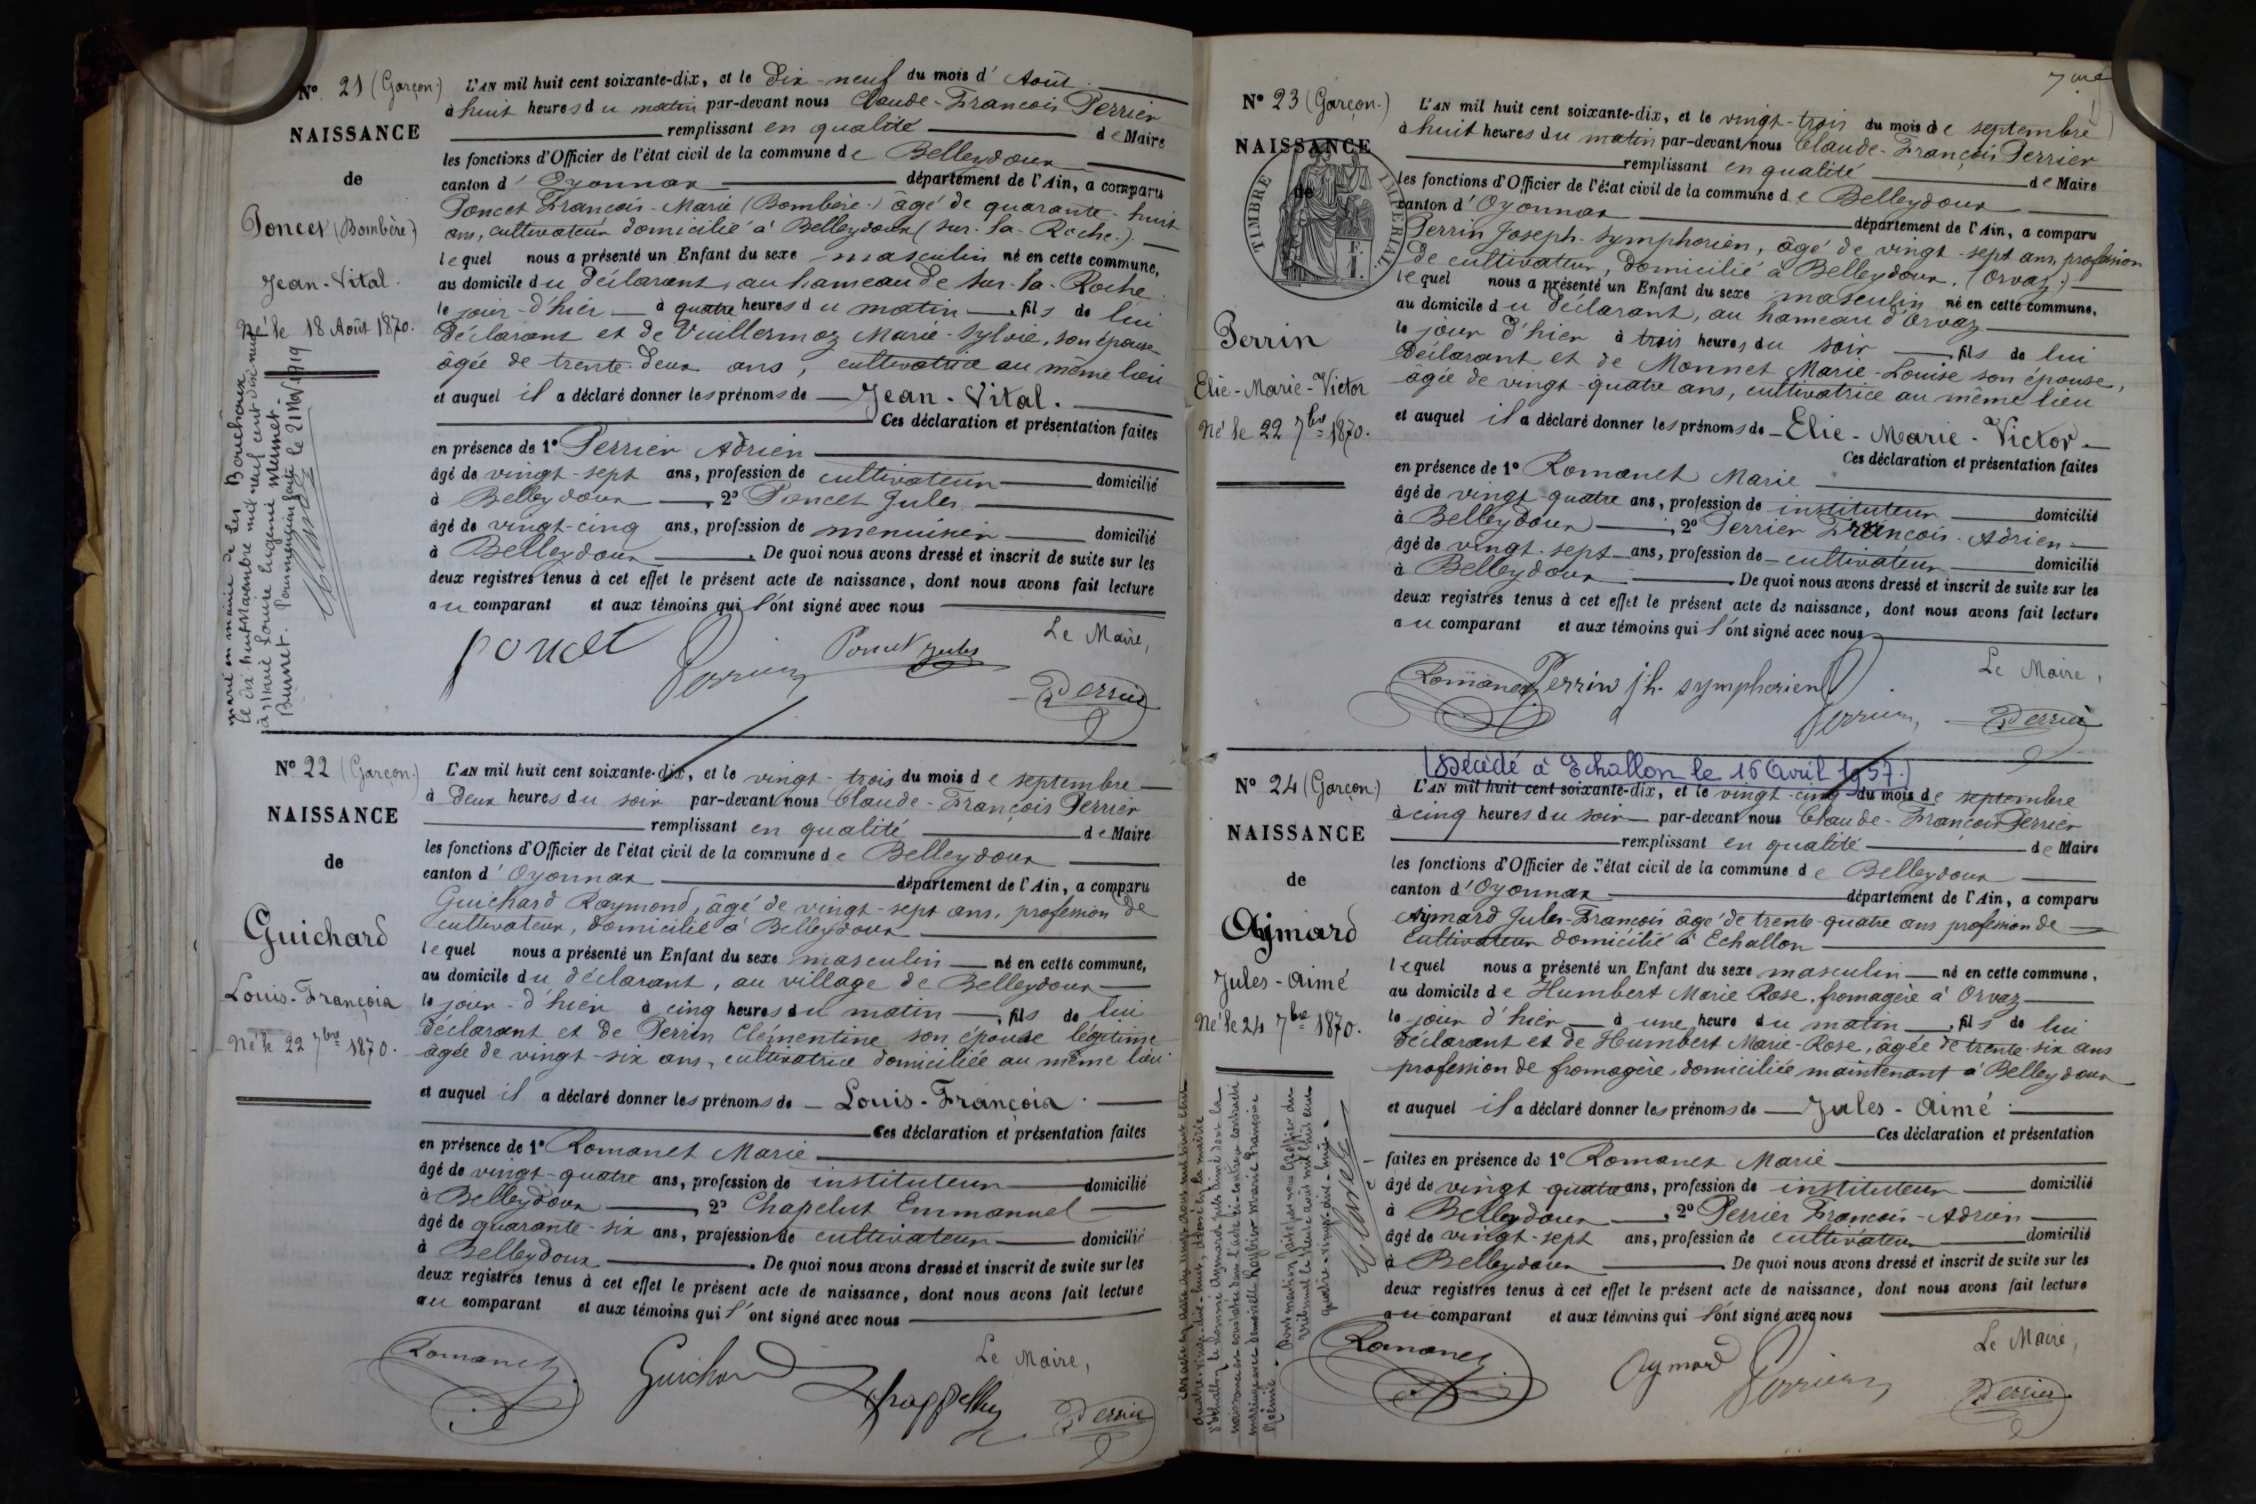 N° 21 (Garçon.)
NAISSANCE
de
Poncet (Bombère)
Jean-Vital.
Né le 18 Août 1870.
marié en mairie de Les Bouchoux
le dix huit novembre mil neuf cent dix neuf
à Marie Louise Eugénie
Pour mention faite le 21 Nov 1919
L'AN mil huit cent soixante-dix, et le dix-neuf du mois d'Août
à huit heures du matin par-devant nous Claude-François Perrier
remplissant en qualité de Maire
les fonctions d'Officier de l'état civil de la commune de Belleydoux
canton d'Oyonnax département de l'Ain, a comparu
Poncet François-Marie (Bombère.) âgé de quarante-huit
ans, cultivateur domicilié à Belleydoux (sur-la-Roche.)
lequel nous a présenté un Enfant du sexe masculin né en cette commune,
au domicile du déclarant, au hameau de Sur-la-Roche
le jour d'hier à quatre heures du matin, fils de lui
déclarant et de Vuillermoz Marie-Sylvie, son épouse
âgée de trente-deux ans, cultivatrice au même lieu
et auquel il a déclaré donner les prénoms de Jean-Vital.
Ces déclaration et présentation faites
en présence de 1° Perrier Adrien
âgé de vingt-sept ans, profession de cultivateur domicilié
à Belleydoux, 2° Poncet Jules
âgé de vingt-cinq ans, profession de menuisier domicilié
à Belleydoux. De quoi nous avons dressé et inscrit de suite sur les
deux registres tenus à cet effet le présent acte de naissance, dont nous avons fait lecture
au comparant et aux témoins qui l'ont signé avec nous
Le Maire,
poncet Perrier Poncet Jules Perrier
N° 22 (Garçon.)
NAISSANCE
de
Guichard
Louis-François
Né le 22 7bre 1870.
L'AN mil huit cent soixante-dix, et le vingt-trois du mois de septembre
à deux heures du soir par-devant nous Claude-François Perrier
remplissant en qualité de Maire
les fonctions d'Officier de l'état civil de la commune de Belleydoux
canton d'Oyonnax département de l'Ain, a comparu
Guichard Raymond, âgé de vingt-sept ans, profession de
cultivateur, domicilié à Belleydoux
lequel nous a présenté un Enfant du sexe masculin né en cette commune,
au domicile du déclarant, au village de Belleydoux
le jour d'hier à cinq heures du matin, fils de lui
déclarant et de Perrin Clémentine son épouse légitime
âgée de vingt-six ans, cultivatrice domiciliée au même lieu
et auquel il a déclaré donner les prénoms de Louis-François.
Ces déclaration et présentation faites
en présence de 1° Romanet Marie
âgé de vingt-quatre ans, profession de instituteur domicilié
à Belleydoux, 2° Chapelut Emmanuel
âgé de quarante-six ans, profession de cultivateur domicilié
à Belleydoux. De quoi nous avons dressé et inscrit de suite sur les
deux registres tenus à cet effet le présent acte de naissance, dont nous avons fait lecture
au comparant et aux témoins qui l'ont signé avec nous
Le Maire,
Romanet Guichard Perrier
7me
N° 23 (Garçon.)
NAISSANCE
de
TIMBRE IMPERIAL
Perrin
Elie-Marie-Victor
Né le 22 7bre 1870.
L'AN mil huit cent soixante-dix, et le vingt-trois du mois de septembre
à huit heures du matin par-devant nous Claude-François Perrier
remplissant en qualité de Maire
les fonctions d'Officier de l'état civil de la commune de Belleydoux
canton d'Oyonnax département de l'Ain, a comparu
Perrin Joseph-Symphorien, âgé de vingt-sept ans, profession
de cultivateur, domicilié à Belleydoux. (Orvaz.)
lequel nous a présenté un Enfant du sexe masculin né en cette commune,
au domicile du déclarant, au hameau d'Orvaz
le jour d'hier à trois heures du soir fils de lui
déclarant et de Monnet Marie-Louise son épouse,
âgée de vingt-quatre ans, cultivatrice au même lieu
et auquel il a déclaré donner les prénoms de Elie-Marie-Victor.
Ces déclaration et présentation faites
en présence de 1° Romanet Marie
âgé de vingt-quatre ans, profession de instituteur domicilié
à Belleydoux, 2° Perrier François-Adrien
âgé de vingt-sept ans, profession de cultivateur domicilié
à Belleydoux. De quoi nous avons dressé et inscrit de suite sur les
deux registres tenus à cet effet le présent acte de naissance, dont nous avons fait lecture
au comparant et aux témoins qui l'ont signé avec nous
Le Maire,
Romanet Perrin jh. symphorien Perrier Perrier
(Décédé à Echallon le 16 Avril 1957.)
N° 24 (Garçon.)
NAISSANCE
de
Aymard
Jules-Aimé
Né le 24 7bre 1870.
L'AN mil huit cent soixante-dix, et le vingt-cinq du mois de septembre
à cinq heures du soir par-devant nous Claude-François Perrier
remplissant en qualité de Maire
les fonctions d'Officier de l'état civil de la commune de Belleydoux
canton d'Oyonnax département de l'Ain, a comparu
Aymard Jules-François âgé de trente-quatre ans profession de
cultivateur domicilié à Echallon
lequel nous a présenté un Enfant du sexe masculin né en cette commune,
au domicile de Humbert Marie Rose, fromagère à Orvaz
le jour d'hier à une heure du matin, fils de lui
déclarant et de Humbert Marie-Rose, âgée de trente-six ans
profession de fromagère, domiciliée maintenant à Belleydoux
et auquel il a déclaré donner les prénoms de Jules-Aimé.
Ces déclaration et présentation
faites en présence de 1° Romanet Marie
âgé de vingt-quatre ans, profession de instituteur domicilié
à Belleydoux, 2° Perrier François-Adrien
âgé de vingt-sept ans, profession de cultivateur domicilié
à Belleydoux De quoi nous avons dressé et inscrit de suite sur les
deux registres tenus à cet effet le présent acte de naissance, dont nous avons fait lecture
au comparant et aux témoins qui l'ont signé avec nous
Le Maire,
Romanet Aymard Perrier Perrier